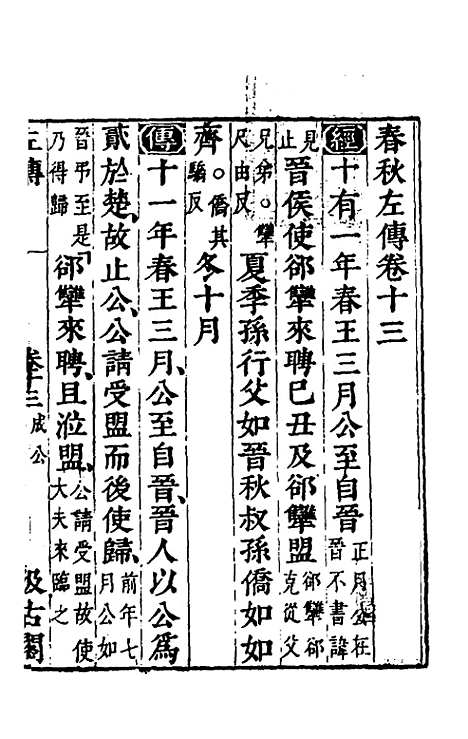 春秋左傳卷十三
經十有一年春王三月公至自晉正月公在晉不書諱
見止晉侯使郤犨來聘己丑及郤犨盟郤犨郤克從父
兄弟○犨尺由反夏季孫行父如晉秋叔孫僑如如
齊○僑其驕反冬十月
傳十一年春王三月公至自晉晉人以公爲
貳於楚故止公公請受盟而後使歸前年七月公如
晉弔至是乃得歸郤犨來聘且涖盟公請受盟故使大夫來臨之
左傳 一 卷十三 成公 汲古閣